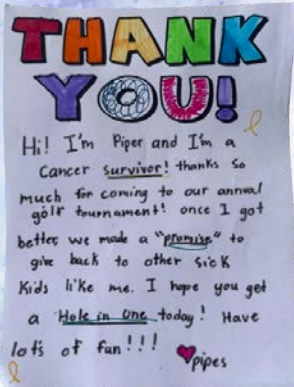 THANK
YOU!
Hi! I'm Piper and I'm a
Cancer survivor! thanks so
much for coming to our annual
golf tournament! once I got
better, we made a "promise" to
give back to other sick
Kids like me. I hope you get
a Hole in One today! Have
lots of fun!!!
pipes